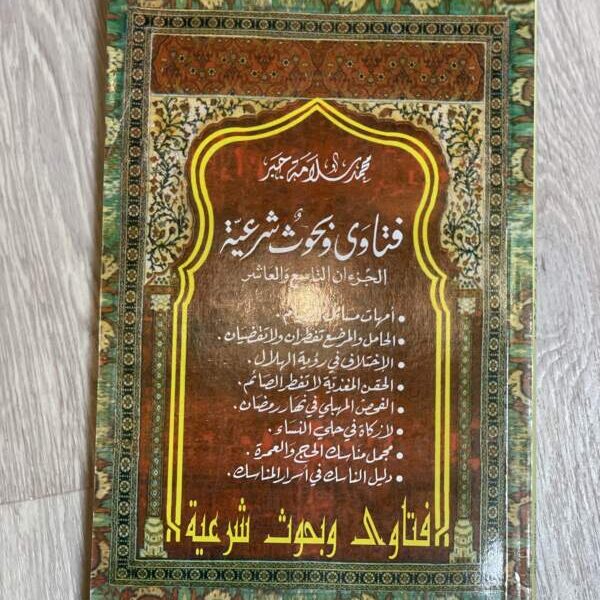 محمد سلامة جبر
فتاوى وبحوث شرعية
الجزءان التاسع والعاشر
• أمهات مسائل
• الحامل والمرضع تفطران ولا تقضيان .
• الإختلاف في رؤية الهلال .
• الحقن المغذية لا تفطر الصائم .
• الفحص المهبلي في نهار رمضان .
• لا زكاة في حلي النساء .
• مجمل مناسك الحج والعمرة .
• دليل الناسك في أسرار المناسك .
فتاوى وبحوث شرعية